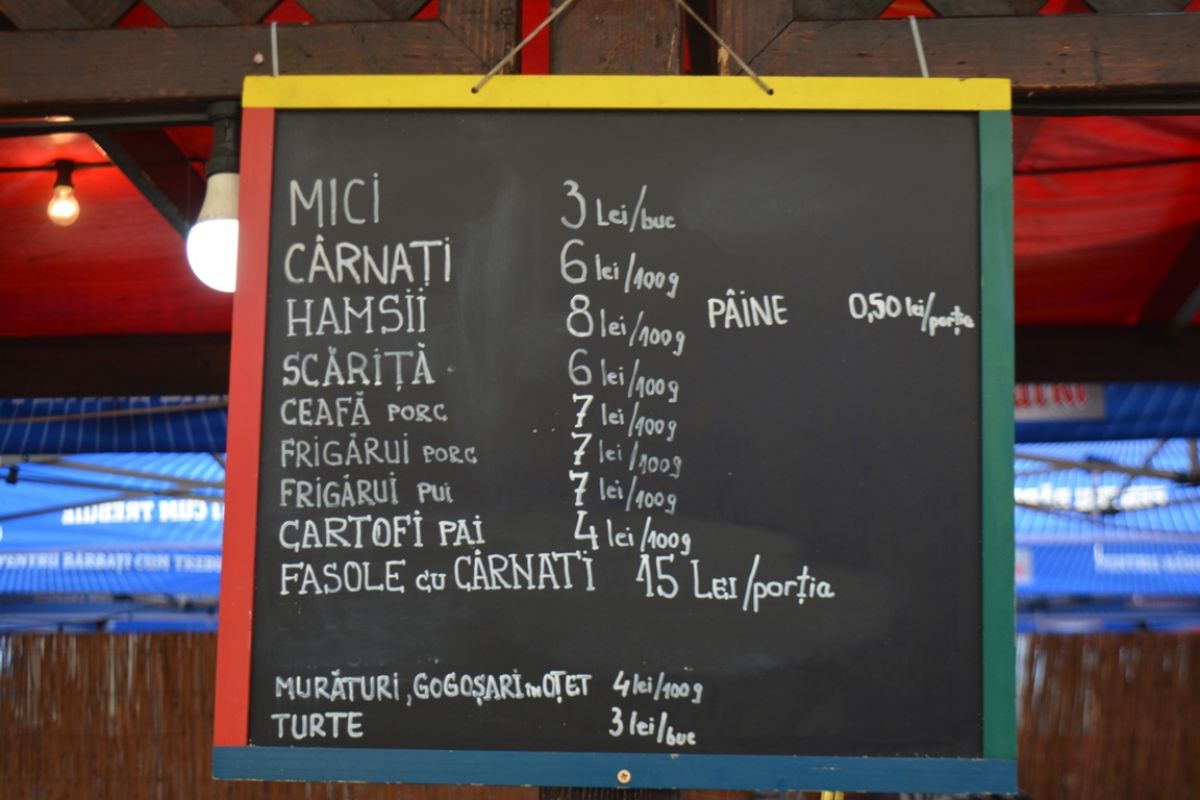 MICI 3 Lei/buc
CÂRNAȚI 6 lei/100g
HAMSII 8 lei/100g PÂINE 0,50 lei/porția
SCĂRIȚĂ 6 lei/100g
CEAFĂ PORC 7 lei/100g
FRIGĂRUI PORC 7 lei/100g
FRIGĂRUI PUI 7 lei/100g
CARTOFI PAI 4 lei/100g
FASOLE cu CÂRNATI 15 LEI/porția
MURĂTURI, GOGOȘARI în OȚET 4 lei/100g
TURTE 3 lei/buc
PENTRU BĂRBAȚI CUM TREBUIE